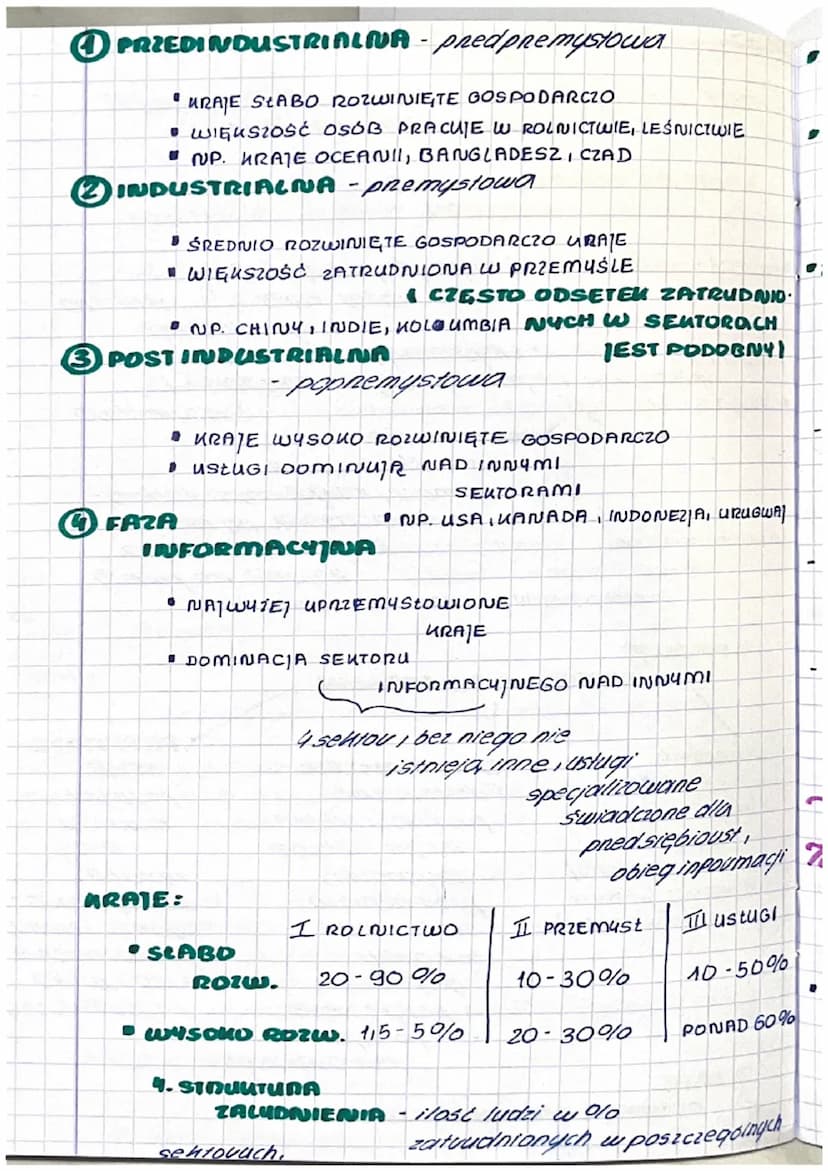 ① PRZEDINDUSTRIALNA - przedprzemysłowa
▪ KRAJE SŁABO ROZWINIĘTE GOSPODARCZO
▪ WIĘKSZOŚĆ OSÓB PRACUJE W ROLNICTWIE, LEŚNICTWIE
▪ NP. KRAJE OCEANII, BANGLADESZ, CZAD
② INDUSTRIALNA - przemysłowa
▪ ŚREDNIO ROZWINIĘTE GOSPODARCZO KRAJE
▪ WIĘKSZOŚĆ ZATRUDNIONA W PRZEMYŚLE
( CZĘSTO ODSETEK ZATRUDNIO-
▪ NP. CHINY, INDIE, KOLOUMBIA NYCH W SEKTORACH
JEST PODOBNY)
③ POSTINDUSTRIALNA
- poprzemysłowa
▪ KRAJE WYSOKO ROZWINIĘTE GOSPODARCZO
▪ USŁUGI DOMINUJĄ NAD INNYMI
SEKTORAMI
▪ NP. USA, KANADA, INDONEZJA, URUGWAJ
④ FAZA
INFORMACYJNA
▪ NAJWYŻEJ UPRZEMYSŁOWIONE
KRAJE
▪ DOMINACJA SEKTORU
INFORMACYJNEGO NAD INNYMI
4 sektor, bez niego nie
istnieją inne, usługi
specjalizowane
świadczone dla
przedsiębiorst,
obieg informacji
KRAJE:
I ROLNICTWO | II PRZEMYSŁ | III USŁUGI
• SŁABO
ROZW. 20-90% 10-30% 10-50%
▪ WYSOKO ROZW. 1,5-5% 20-30% PONAD 60%
4. STRUKTURA
ZALUDNIENIA - ilość ludzi w %
zatrudnionych w poszczególnych
sektorach.